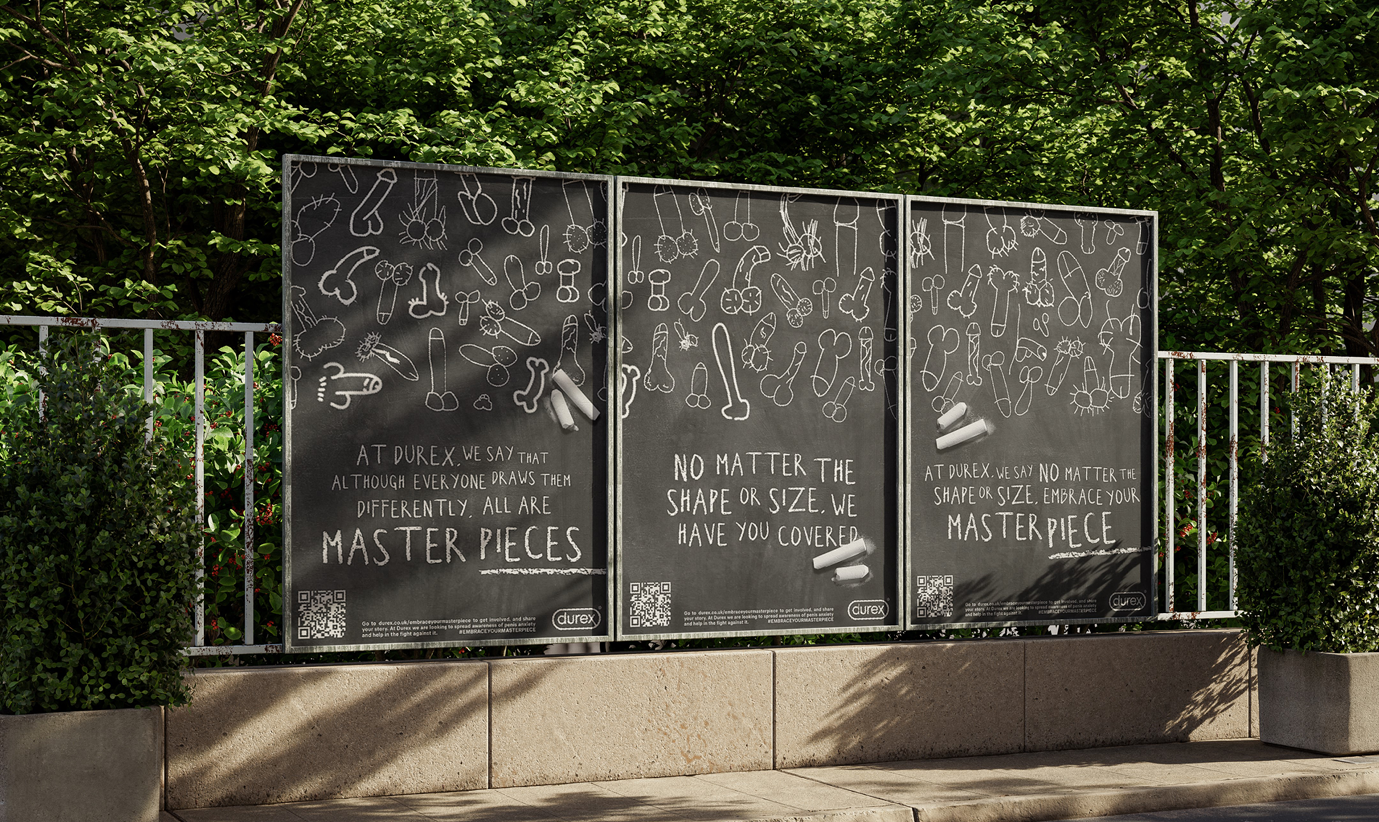 AT DUREX, WE SAY THAT
ALTHOUGH EVERYONE DRAWS THEM
DIFFERENTLY, ALL ARE
MASTER PIECES
Go to durex.co.uk/embraceyourmasterpiece to get involved, and share
your story. At Durex we are looking to spread awareness of penis anxiety
and help in the fight against it.
#EMBRACEYOURMASTERPIECE
durex
NO MATTER THE
SHAPE OR SIZE, WE
HAVE YOU COVERED
Go to durex.co.uk/embraceyourmasterpiece to get involved, and share
your story. At Durex we are looking to spread awareness of penis anxiety
and help in the fight against it.
#EMBRACEYOURMASTERPIECE
durex
AT DUREX, WE SAY NO MATTER THE
SHAPE OR SIZE, EMBRACE YOUR
MASTERPIECE
Go to durex.co.uk/embraceyourmasterpiece to get involved, and share
your story. At Durex we are looking to spread awareness of penis anxiety
and help in the fight against it.
#EMBRACEYOURMASTERPIECE
durex